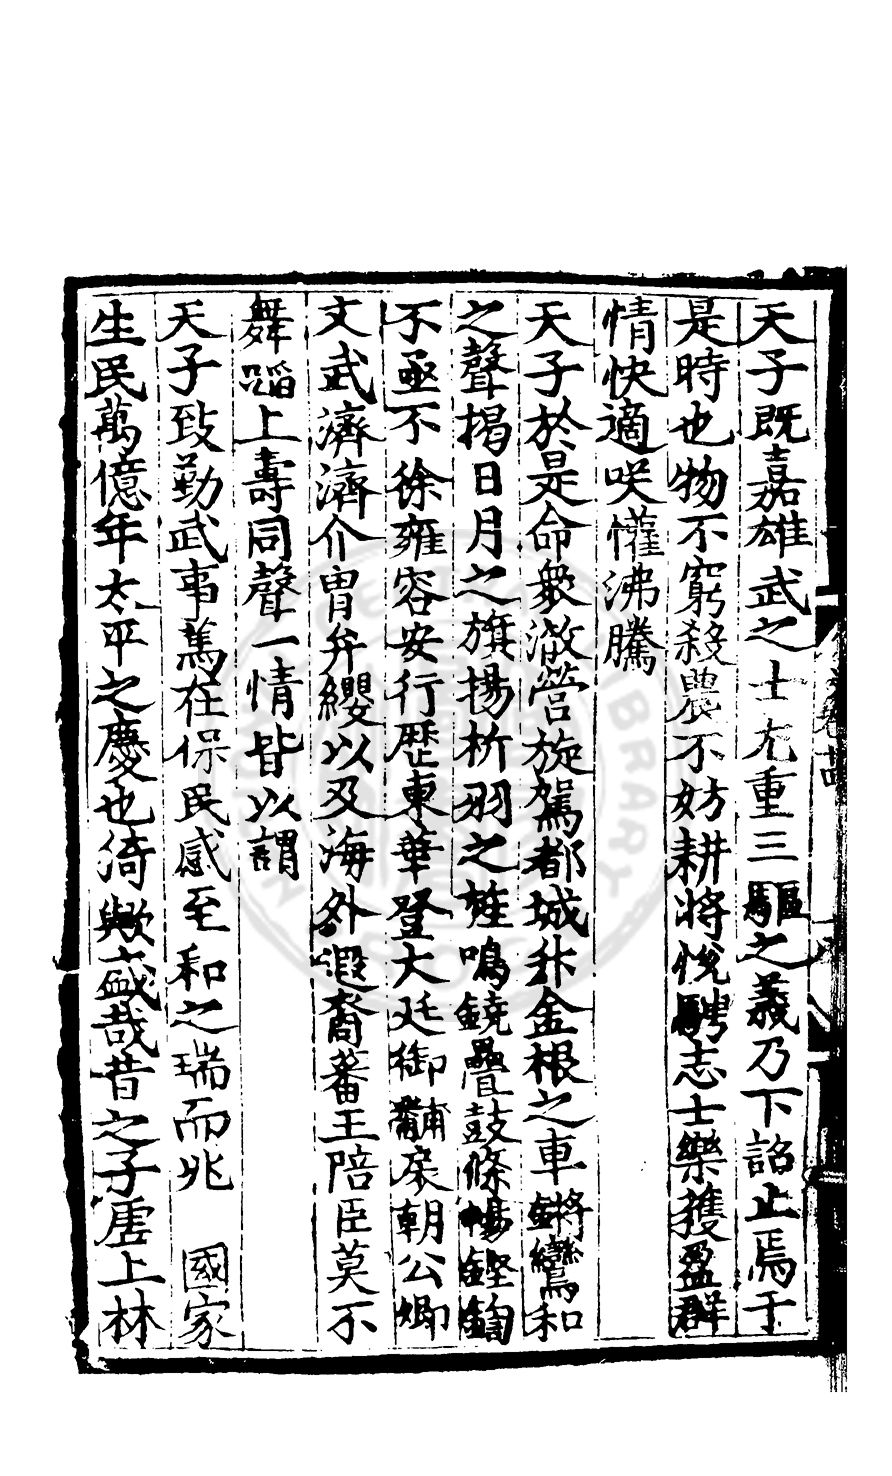 天子既嘉雄武之士尤重三驅之義乃下詔止焉于
是時也物不窮殺農不妨耕將悅騁志士樂獲盈群
情快適咲懽沸騰
天子於是命衆澈營旋駕都城升金根之車鏘鸞和
之聲揭日月之旗揚析羽之旌鳴鐃疊鼓條暢鏗鍧
不亟不徐雍容安行歷東華登大廷御黼扆朝公卿
文武濟濟介胄弁纓以及海外遐裔蕃王陪臣莫不
舞蹈上壽同聲一情皆以謂
天子致勤武事篤在保民感至和之瑞而兆　國家
生民萬億年太平之慶也渏歟盛哉昔之子虛上林